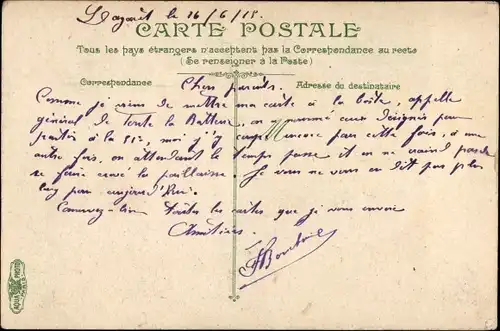 le 16/6/15
CARTE POSTALE
Tous les pays étrangers n'acceptent pas la Correspondance au recto
(Se renseigner à la Poste)
Correspondance
Adresse du destinataire
Chers parents.
Comme je viens de mettre ma carte à la boîte, appelle
général de toute la Batterie, on a nommé ceux désignés pour
partir à la moi, j'y coupe encore pour cette fois, à une
autre fois, en attendant le temps passe et on ne craint pas de
se faire crevé la paillasse. Je vous ne en dit pas plus
long pour aujourd'hui.
Conservez-bien toutes les cartes que je vous envoie
Amitiés
AQUA PHOTO
PARIS